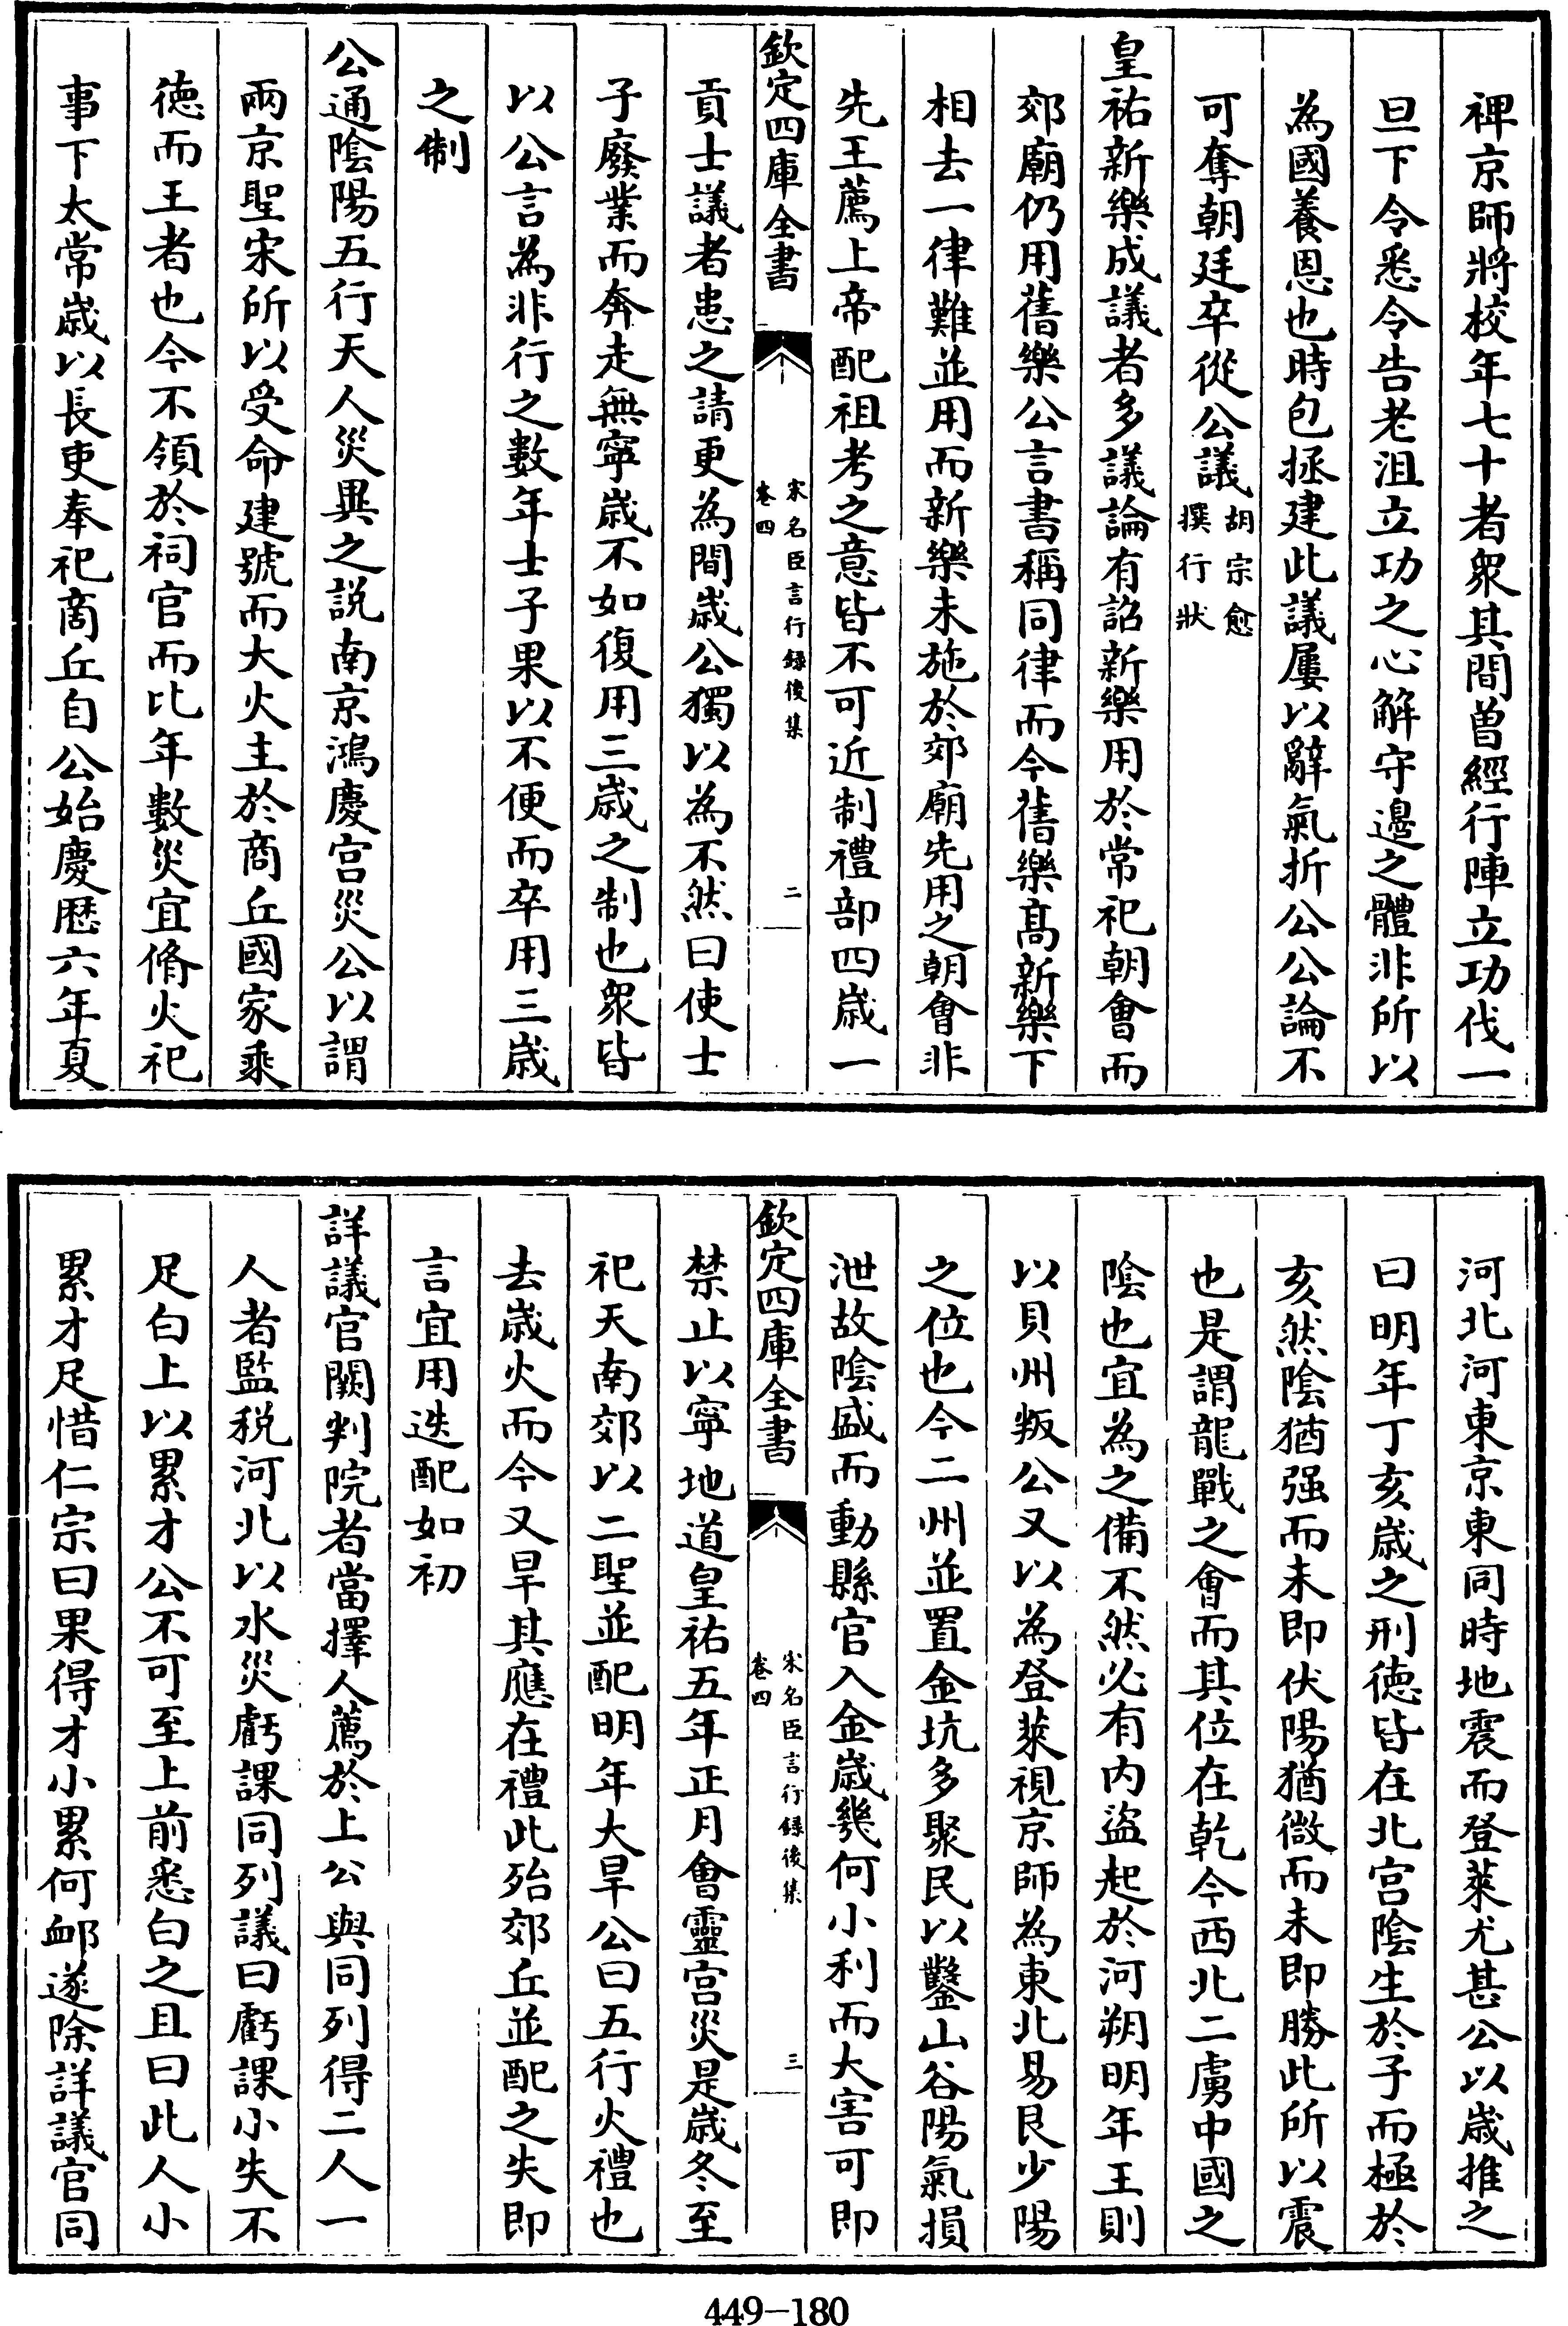 禆京師將校年七十者衆其間曽經行陣立功伐一
旦下令悉令告老沮立功之心解守邉之體非所以
為國養恩也時包拯建此議屢以辭氣折公公論不
可奪朝廷卒從公議胡宗愈撰行狀
皇祐新樂成議者多議論有詔新樂用於常祀朝會而
郊廟仍用舊樂公言書稱同律而今舊樂髙新樂下
相去一律難並用而新樂未施於郊廟先用之朝會非
先王薦上帝配祖考之意皆不可近制禮部四歳一
欽定四庫全書
宋名臣言行録後集
卷四
二
貢士議者患之請更為間歳公獨以為不然曰使士
子廢業而奔走無寧歳不如復用三歳之制也衆皆
以公言為非行之數年士子果以不便而卒用三歳
之制
公通隂陽五行天人災異之説南京鴻慶宮災公以謂
兩京聖宋所以受命建號而大火主於商丘國家乘
徳而王者也今不領於祠官而比年數災宜脩火祀
事下太常歳以長吏奉祀商丘自公始慶厯六年夏
河北河東京東同時地震而登萊尤甚公以歳推之
曰明年丁亥歳之刑徳皆在北宮隂生於子而極於
亥然隂猶强而未即伏陽猶微而未即勝此所以震
也是謂龍戰之會而其位在乾今西北二虜中國之
隂也宜為之備不然必有内盜起於河朔明年王則
以貝州叛公又以為登萊視京師為東北易艮少陽
之位也今二州並置金坑多聚民以鑿山谷陽氣損
泄故隂盛而動縣官入金歳幾何小利而大害可即
欽定四庫全書
宋名臣言行録後集
卷四
三
禁止以寧地道皇祐五年正月會靈宮災是歳冬至
祀天南郊以二聖並配明年大旱公曰五行火禮也
去歳火而今又旱其應在禮此殆郊丘並配之失即
言宜用迭配如初
詳議官闕判院者當擇人薦於上公與同列得二人一
人者監税河北以水災虧課同列議曰虧課小失不
足白上以累才公不可至上前悉白之且曰此人小
累才足惜仁宗曰果得才小累何䘏遂除詳議官同
449-180